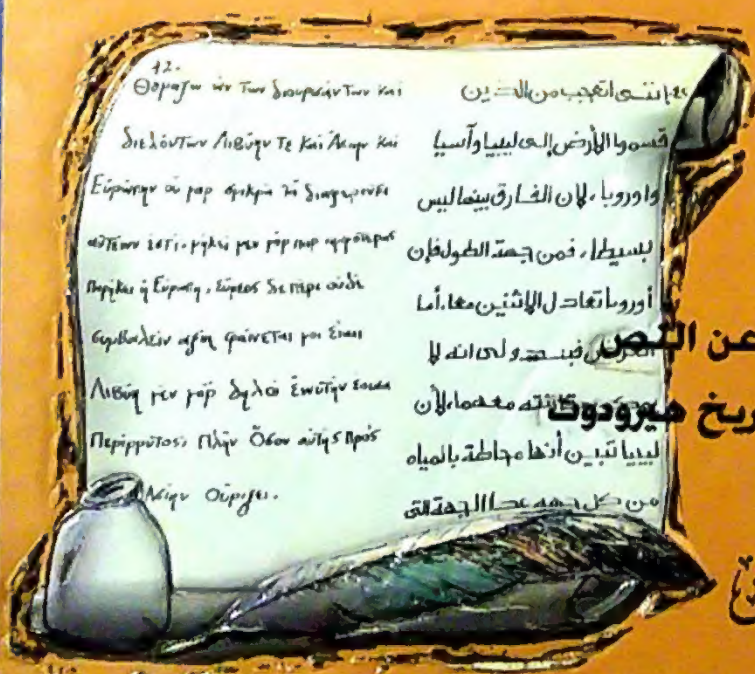 42.
Θομάζω ὦν τῶν διουρισάντων καὶ
διελόντων Λιβύην τε καὶ Ἀσίην καὶ
Εὐρώπην οὐ γὰρ σμικρὰ τὰ διαφέροντα
αὐτέων ἐστί, μήκεϊ μὲν γὰρ παρ ἀμφοτέρας
παρήκει ἡ Εὐρώπη, εὔρεος δὲ πέρι οὐδὲ
συμβαλεῖν ἀξίη φαίνεται μοι εἶναι
Λιβύη μὲν γὰρ δηλοῖ ἑωυτὴν ἐοῦσα
Περίρρυτος, Πλὴν Ὅσον αὐτῆς Πρὸς
Ἀσίην Οὐρίζει.
٤٢ إنني اتعجب من الذين
قسموا الأرض إلى ليبيا وآسيا
واوروبا، لان الفارق بينها ليس
بسيطا، فمن جهة الطول فإن
أوروبا تعادل الإثنين معا، أما
العرض فيبدو لي انه لا
معهما، لأن
ليبيا تبين أنها محاطة بالمياه
من كل جهه عدا الجهة التي
عن النص
ريخ هيرودوت